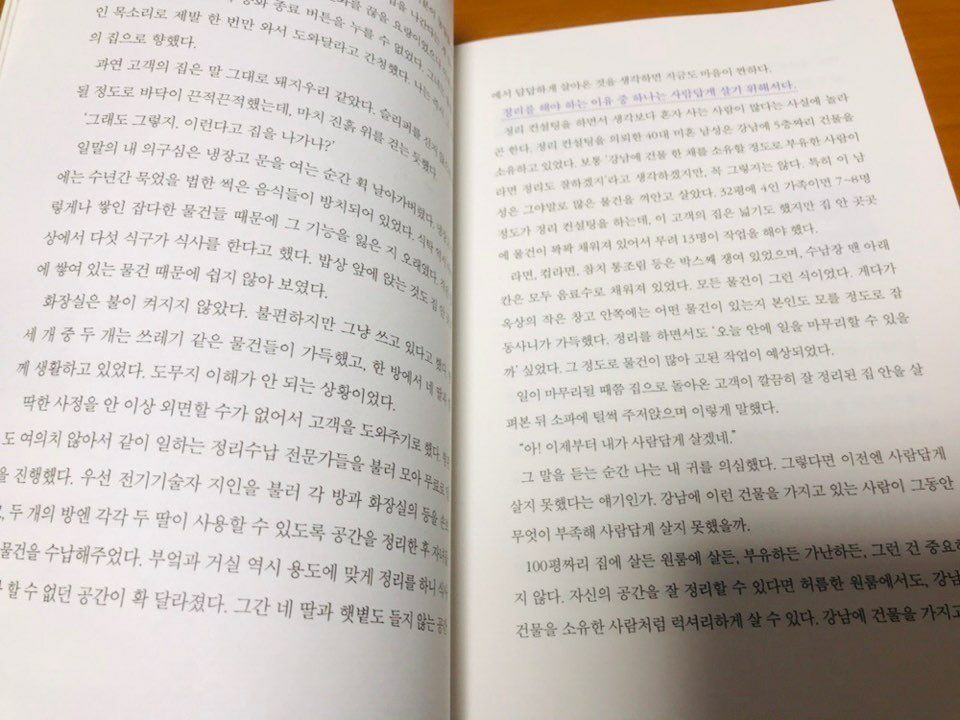 통화 종료 버튼을 누를 수 없었다. 그녀는
인 목소리로 제발 한 번만 와서 도와달라고 간청했다. 나는
의 집으로 향했다.
과연 고객의 집은 말 그대로 돼지우리 같았다. 슬리퍼를 신지
될 정도로 바닥이 끈적끈적했는데, 마치 진흙 위를 걷는 듯했다.
'그래도 그렇지. 이런다고 집을 나가나?'
일말의 내 의구심은 냉장고 문을 여는 순간 확 날아가버렸다.
에는 수년간 묵었을 법한 썩은 음식들이 방치되어 있었다. 식탁
렇게나 쌓인 잡다한 물건들 때문에 그 기능을 잃은 지 오래였다.
상에서 다섯 식구가 식사를 한다고 했다. 밥상 앞에 앉는 것도
에 쌓여 있는 물건 때문에 쉽지 않아 보였다.
화장실은 불이 켜지지 않았다. 불편하지만 그냥 쓰고 있다고 했다.
세 개 중 두 개는 쓰레기 같은 물건들이 가득했고, 한 방에서 네 딸과
께 생활하고 있었다. 도무지 이해가 안 되는 상황이었다.
딱한 사정을 안 이상 외면할 수가 없어서 고객을 도와주기로 했다.
도 여의치 않아서 같이 일하는 정리수납 전문가들을 불러 모아 무료로
을 진행했다. 우선 전기기술자 지인을 불러 각 방과 화장실의 등을
두 개의 방엔 각각 두 딸이 사용할 수 있도록 공간을 정리한 후
물건을 수납해주었다. 부엌과 거실 역시 용도에 맞게 정리를 하니
할 수 없던 공간이 확 달라졌다. 그간 네 딸과 햇볕도 들지 않는
에서 답답하게 살아온 것을 생각하면 지금도 마음이 짠하다.
정리를 해야 하는 이유 중 하나는 사람답게 살기 위해서다.
정리 컨설팅을 하면서 생각보다 혼자 사는 사람이 많다는 사실에 놀라
곤 한다. 정리 컨설팅을 의뢰한 40대 미혼 남성은 강남에 5층짜리 건물을
소유하고 있었다. 보통 '강남에 건물 한 채를 소유할 정도로 부유한 사람이
라면 정리도 잘하겠지'라고 생각하겠지만, 꼭 그렇지는 않다. 특히 이 남
성은 그야말로 많은 물건을 껴안고 살았다. 32평에 4인 가족이면 7~8명
정도가 정리 컨설팅을 하는데, 이 고객의 집은 넓기도 했지만 집 안 곳곳
에 물건이 꽉꽉 채워져 있어서 무려 13명이 작업을 해야 했다.
라면, 컵라면, 참치 통조림 등은 박스째 쟁여 있었으며, 수납장 맨 아래
칸은 모두 음료수로 채워져 있었다. 모든 물건이 그런 식이었다. 게다가
옥상의 작은 창고 안쪽에는 어떤 물건이 있는지 본인도 모를 정도로 잡
동사니가 가득했다. 정리를 하면서도 '오늘 안에 일을 마무리할 수 있을
까' 싶었다. 그 정도로 물건이 많아 고된 작업이 예상되었다.
일이 마무리될 때쯤 집으로 돌아온 고객이 깔끔히 잘 정리된 집 안을 살
펴본 뒤 소파에 털썩 주저앉으며 이렇게 말했다.
"아! 이제부터 내가 사람답게 살겠네."
그 말을 듣는 순간 나는 내 귀를 의심했다. 그렇다면 이전엔 사람답게
살지 못했다는 얘기인가. 강남에 이런 건물을 가지고 있는 사람이 그동안
무엇이 부족해 사람답게 살지 못했을까.
100평짜리 집에 살든 원룸에 살든, 부유하든 가난하든, 그런 건 중요하
지 않다. 자신의 공간을 잘 정리할 수 있다면 허름한 원룸에서도, 강남
건물을 소유한 사람처럼 럭셔리하게 살 수 있다. 강남에 건물을 가지고